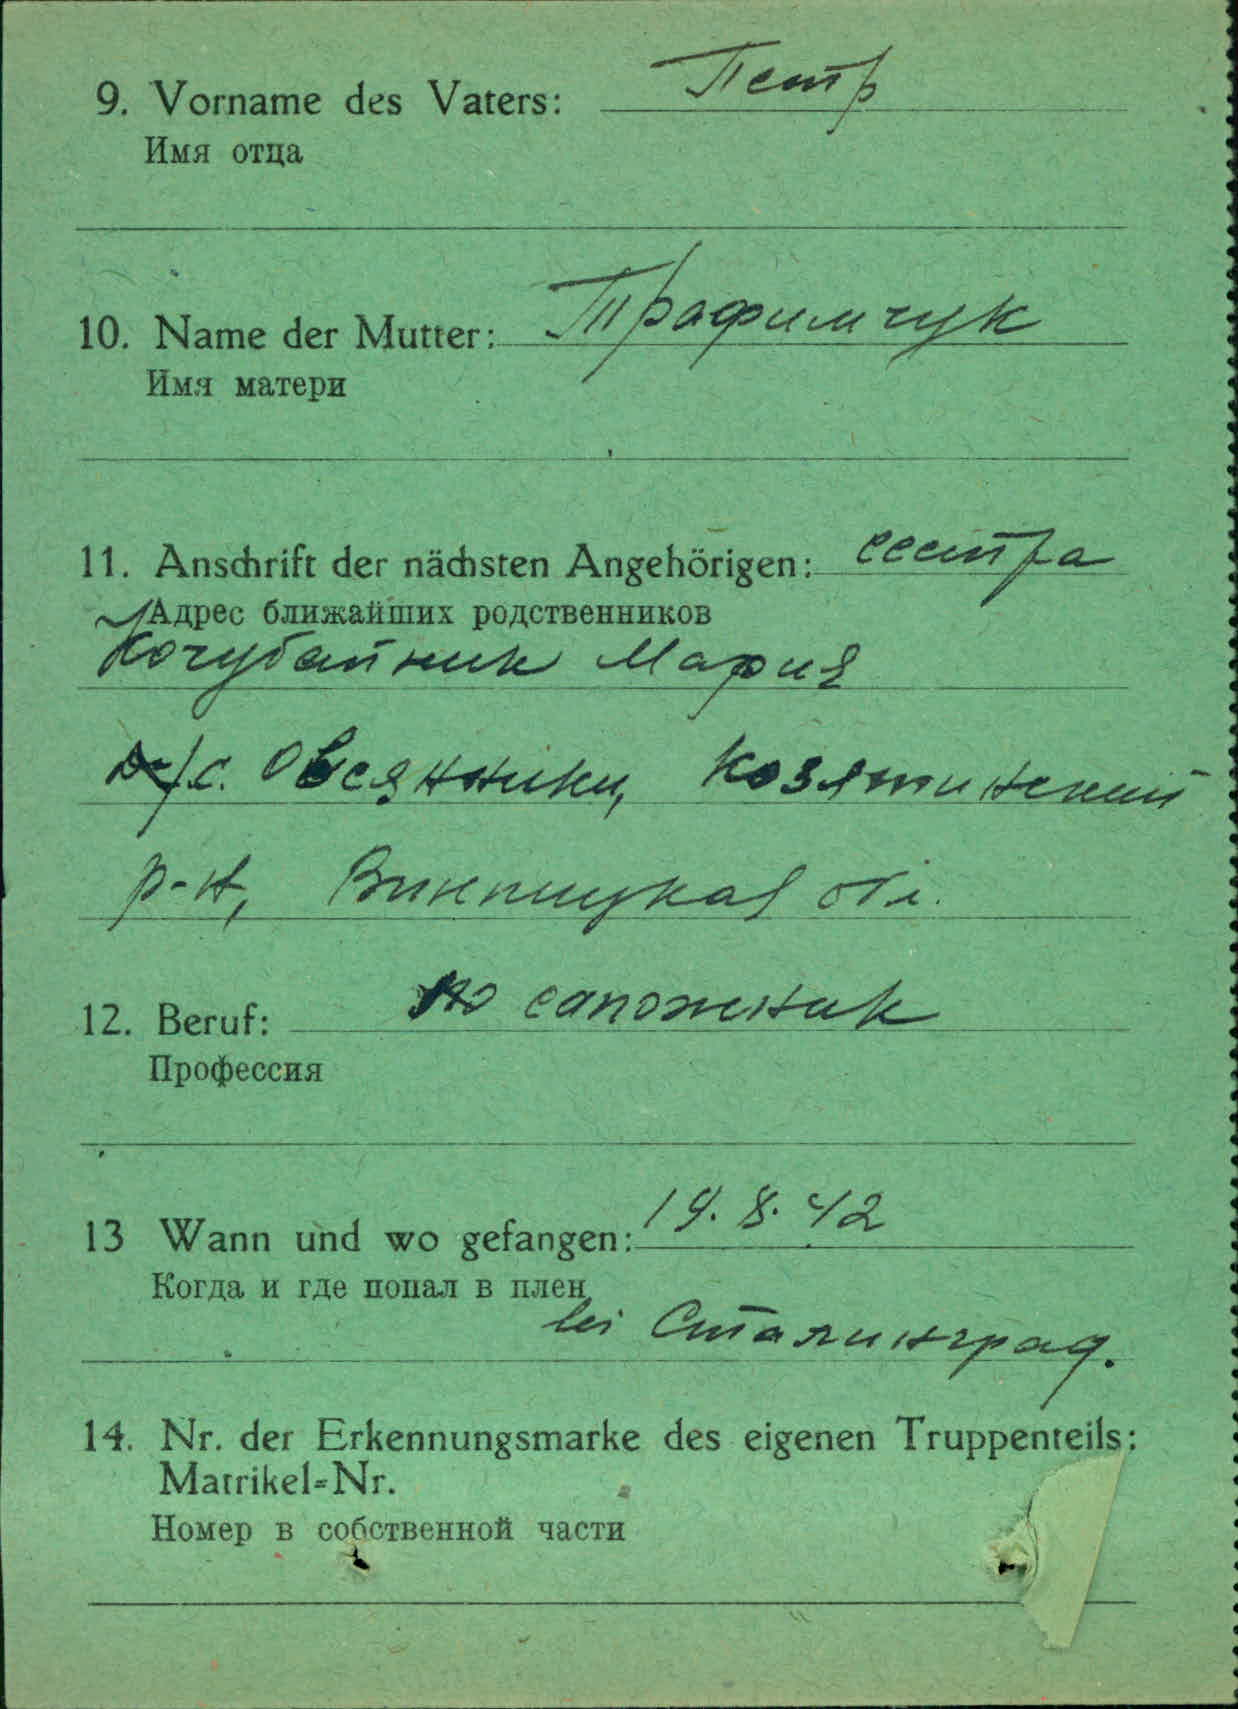 9. Vorname des Vaters: Петр
Имя отца
10. Name der Mutter: Трафимчук
Имя матери
11. Anschrift der nächsten Angehörigen: сестра
Адрес ближайших родственников
Кочубайник Мария
/с. Овсянники, Козятинский
р-н, Винницкая обл.
12. Beruf: сапожник
Профессия
13 Wann und wo gefangen: 19. 8. 42
Когда и где попал в плен
bei Сталинград.
14. Nr. der Erkennungsmarke des eigenen Truppenteils:
Matrikel=Nr.
Номер в собственной части